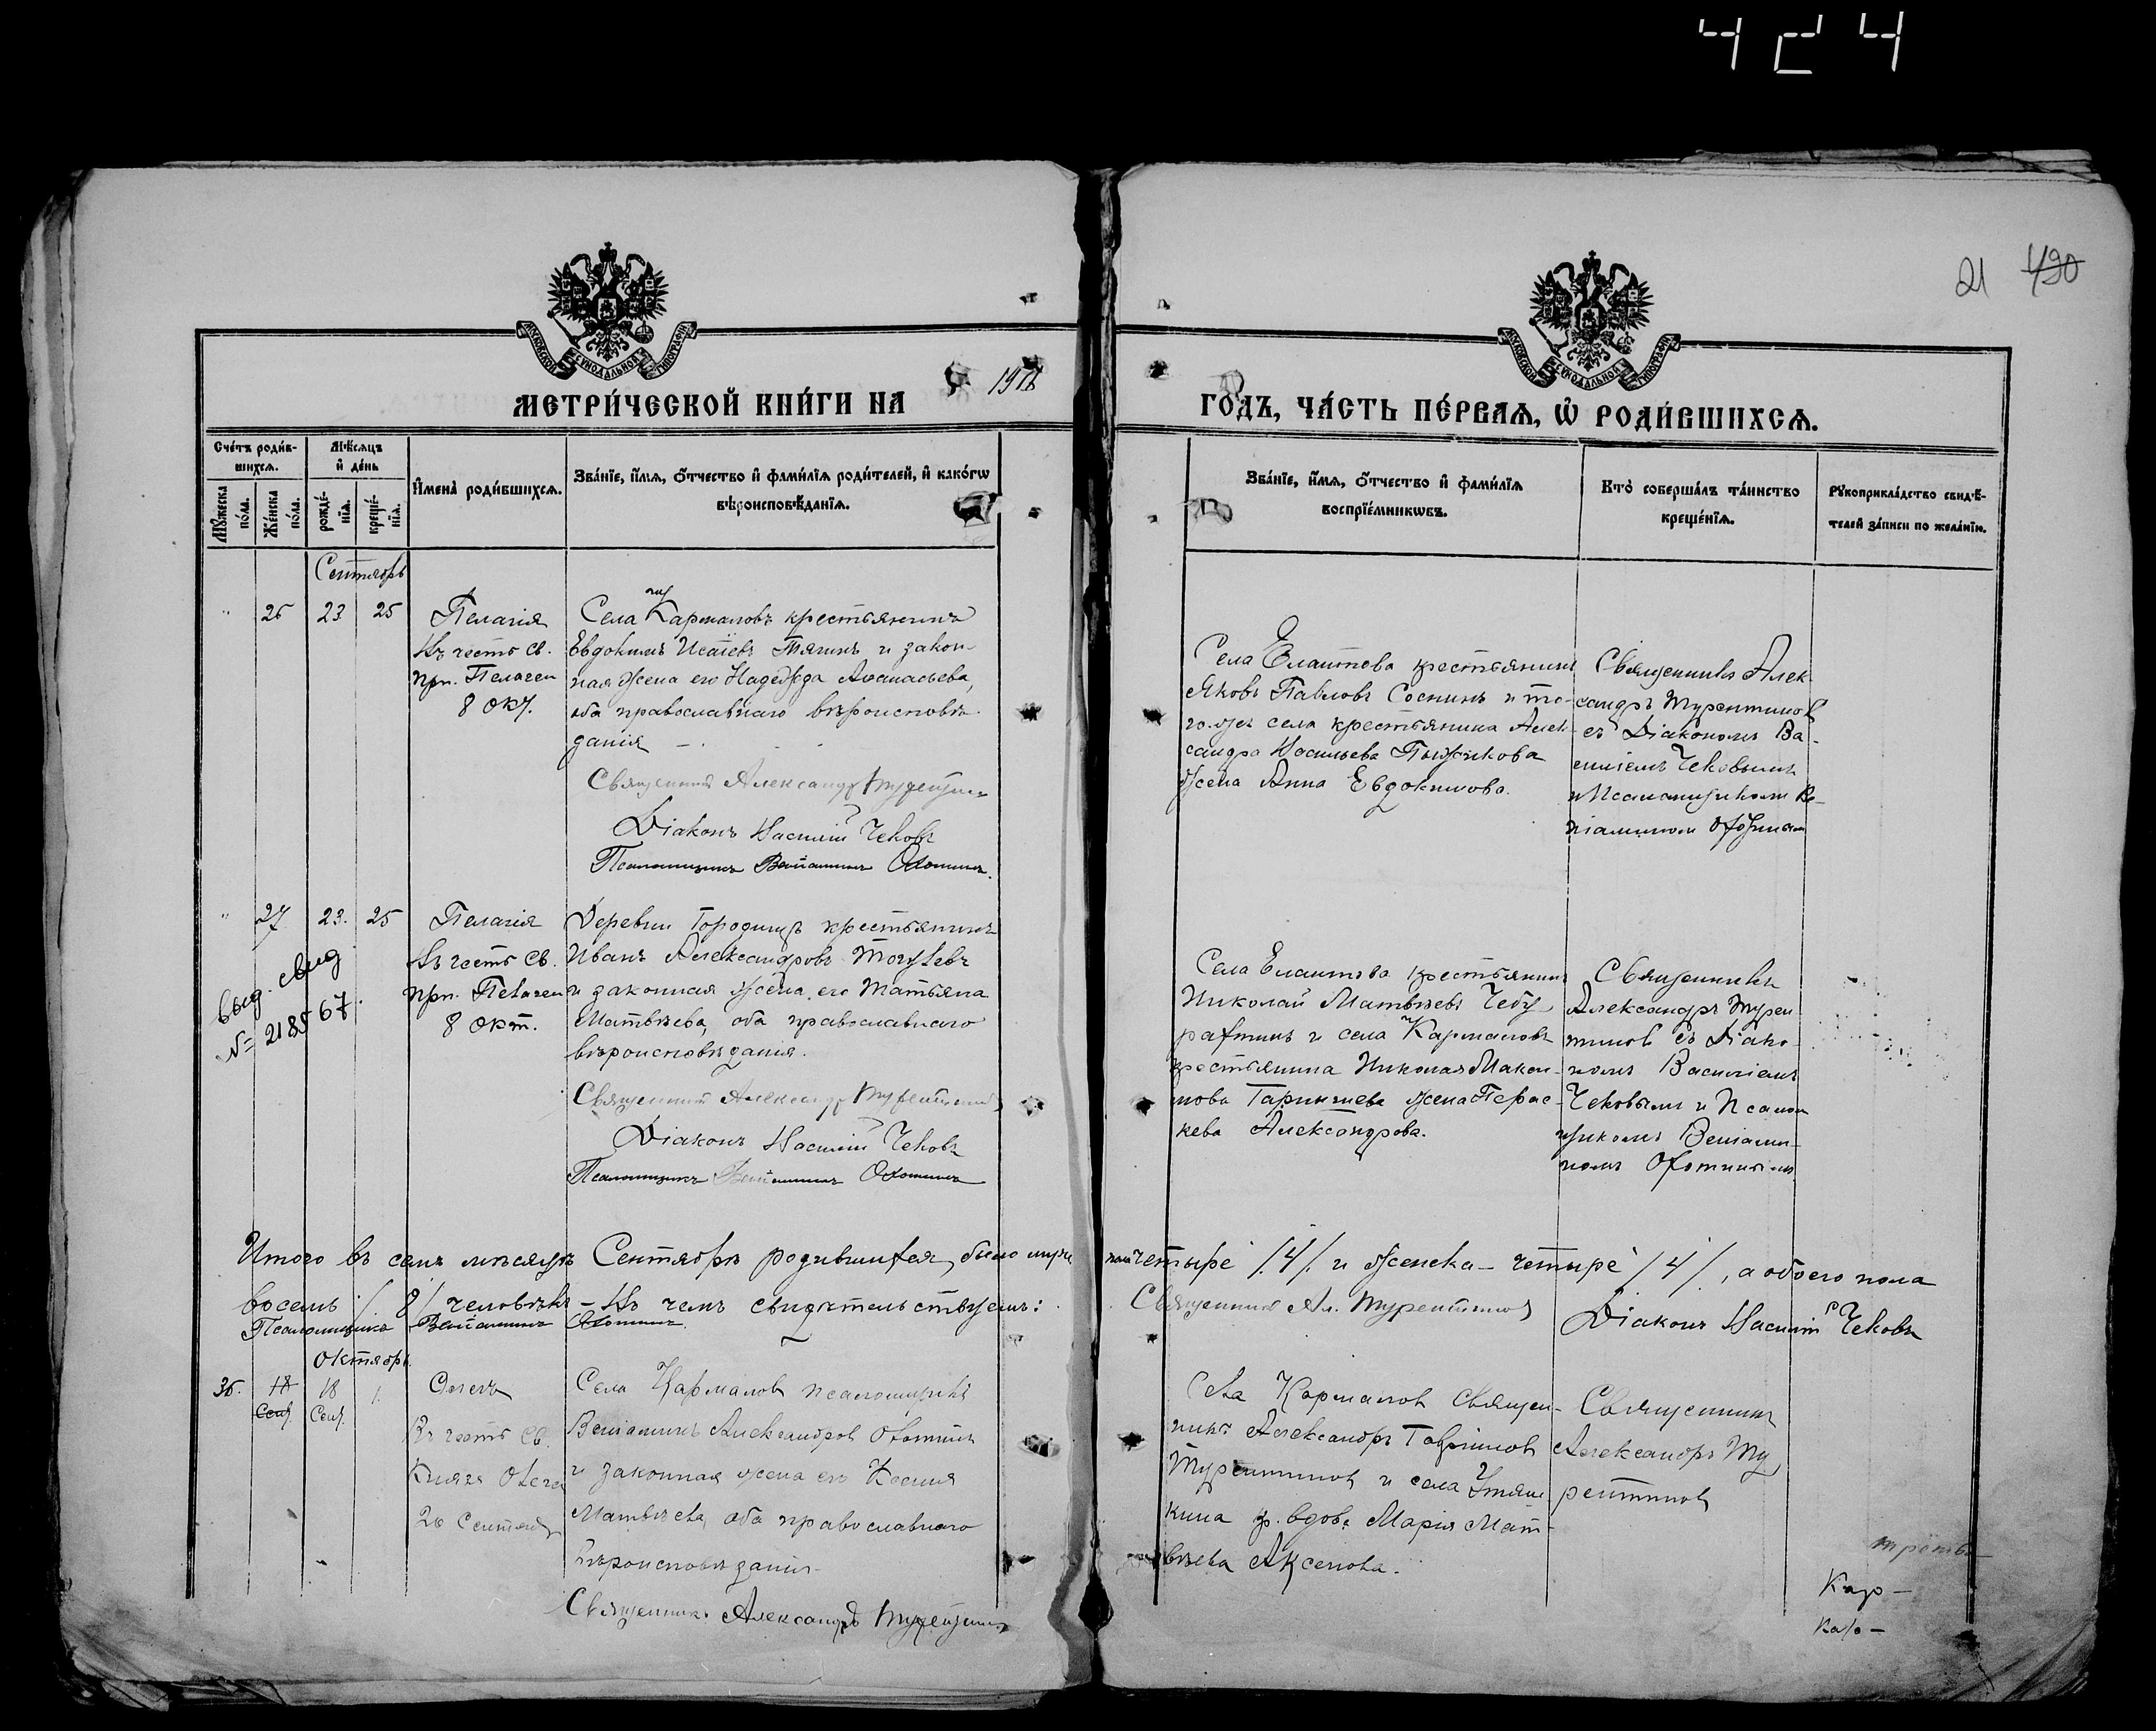 424
21 490
МОСКОВСКОЙ СУНОДАЛЬНОЙ ТИПОГРАФІИ
МОСКОВСКОЙ СУНОДАЛЬНОЙ ТИПОГРАФІИ
МЕТРИ́ЧЕСКОЙ КНИ́ГИ НА
ГО́ДЪ, ЧА́СТЬ ПЕ́РВАЯ, Ѡ РОДИ́ВШИХСЯ.
Сче́тъ роди́в-
шихся.
Мѣ́сяцъ
и де́нь
Му́жеска по́ла.
Же́нска по́ла.
рожде́-
нія.
креще́-
нія.
Имена̀ роди́вшихся.
Зва́ніе, и́мя, о́тчество и фами́лія роди́телей, и како́гѡ
вѣроисповѣ́данія.
Зва́ніе, и́мя, о́тчество и фами́лія
воспріе́мникѡвъ.
Кто̀ соверша́лъ та́инство
креще́нія.
Рукоприкла́дство свидѣ́-
телей за́писи по жела́нію.
Сентябрь
" 26 23 25
Пелагія
Въ честь св.
прп. Пелагеи
8 окт.
Села Кармаловъ крестьянинъ
Евдокимъ Исаіевъ Тягинъ и закон-
ная жена его Надежда Аѳанасьева,
оба православнаго вѣроисповѣ-
данія
Священникъ Александръ Турентиновъ
Діаконъ Василій Чековъ
Псаломщикъ Веніаминъ Охотинъ.
Села Елаитова крестьянинъ
Яковъ Павловъ Соснинъ и то-
го-же села крестьянина Алек-
сандра Васильева Пыжикова
жена Анна Евдокимова.
Священникъ Алек-
сандръ Турентиновъ
съ Діакономъ Ва-
силіемъ Чековымъ
и Псаломщикомъ Ве-
ніаминомъ Охотинымъ
" 27 23. 25
выд. свид
№ 218567.
Пелагія
Въ честь св.
прп. Пелагеи
8 окт.
Деревни Городищъ крестьянинъ
Иванъ Александровъ
и законная жена его Татьяна
Матвѣева, оба православнаго
вѣроисповѣданія.
Священникъ Александръ Турентиновъ
Діаконъ Василій Чековъ
Псаломщикъ Веніаминъ Охотинъ
Села Елаитова крестьянинъ
Николай Матвѣевъ
и села Кармаловъ
крестьянина Николая Макси-
мова жена Парас-
кева Александрова.
Священникъ
Александръ Турен-
тиновъ съ Діако-
номъ Василіемъ
Чековымъ и Псалом-
щикомъ Веніами-
номъ Охотинымъ
Итого въ семъ мѣсяцѣ Сентябрѣ родившихся было муж. пола четыре /4/ и женска – четыре /4/, а обоего пола
восемь /8/ человѣкъ – Въ чемъ свидѣтельствуемъ:
Священникъ Ал. Турентиновъ
Діаконъ Василій Чековъ
Псаломщикъ Веніаминъ Охотинъ
Октябрь
36. 18 18 1.
Сент. Сент.
Олегъ
Въ честь св.
Князя Олега
20 Сентября
Села Кармаловъ псаломщикъ
Веніаминъ Александровъ Охотинъ
и законная жена его Ксенія
Матвѣева, оба православнаго
вѣроисповѣданія.
Священникъ Александръ Турентиновъ
Села Кармаловъ Священ-
никъ Александръ Гавриловъ
Турентиновъ и села
кина кр. вдова Марія Мат-
вѣева Аксенова.
Священникъ
Александръ Ту-
рентиновъ
Кар-
Кар-